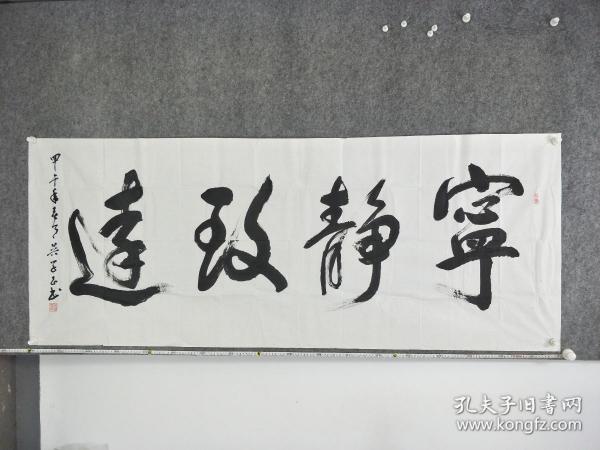 寧靜致遠
甲午年春月吴子正书
孔夫子旧書网
www.kongfz.com